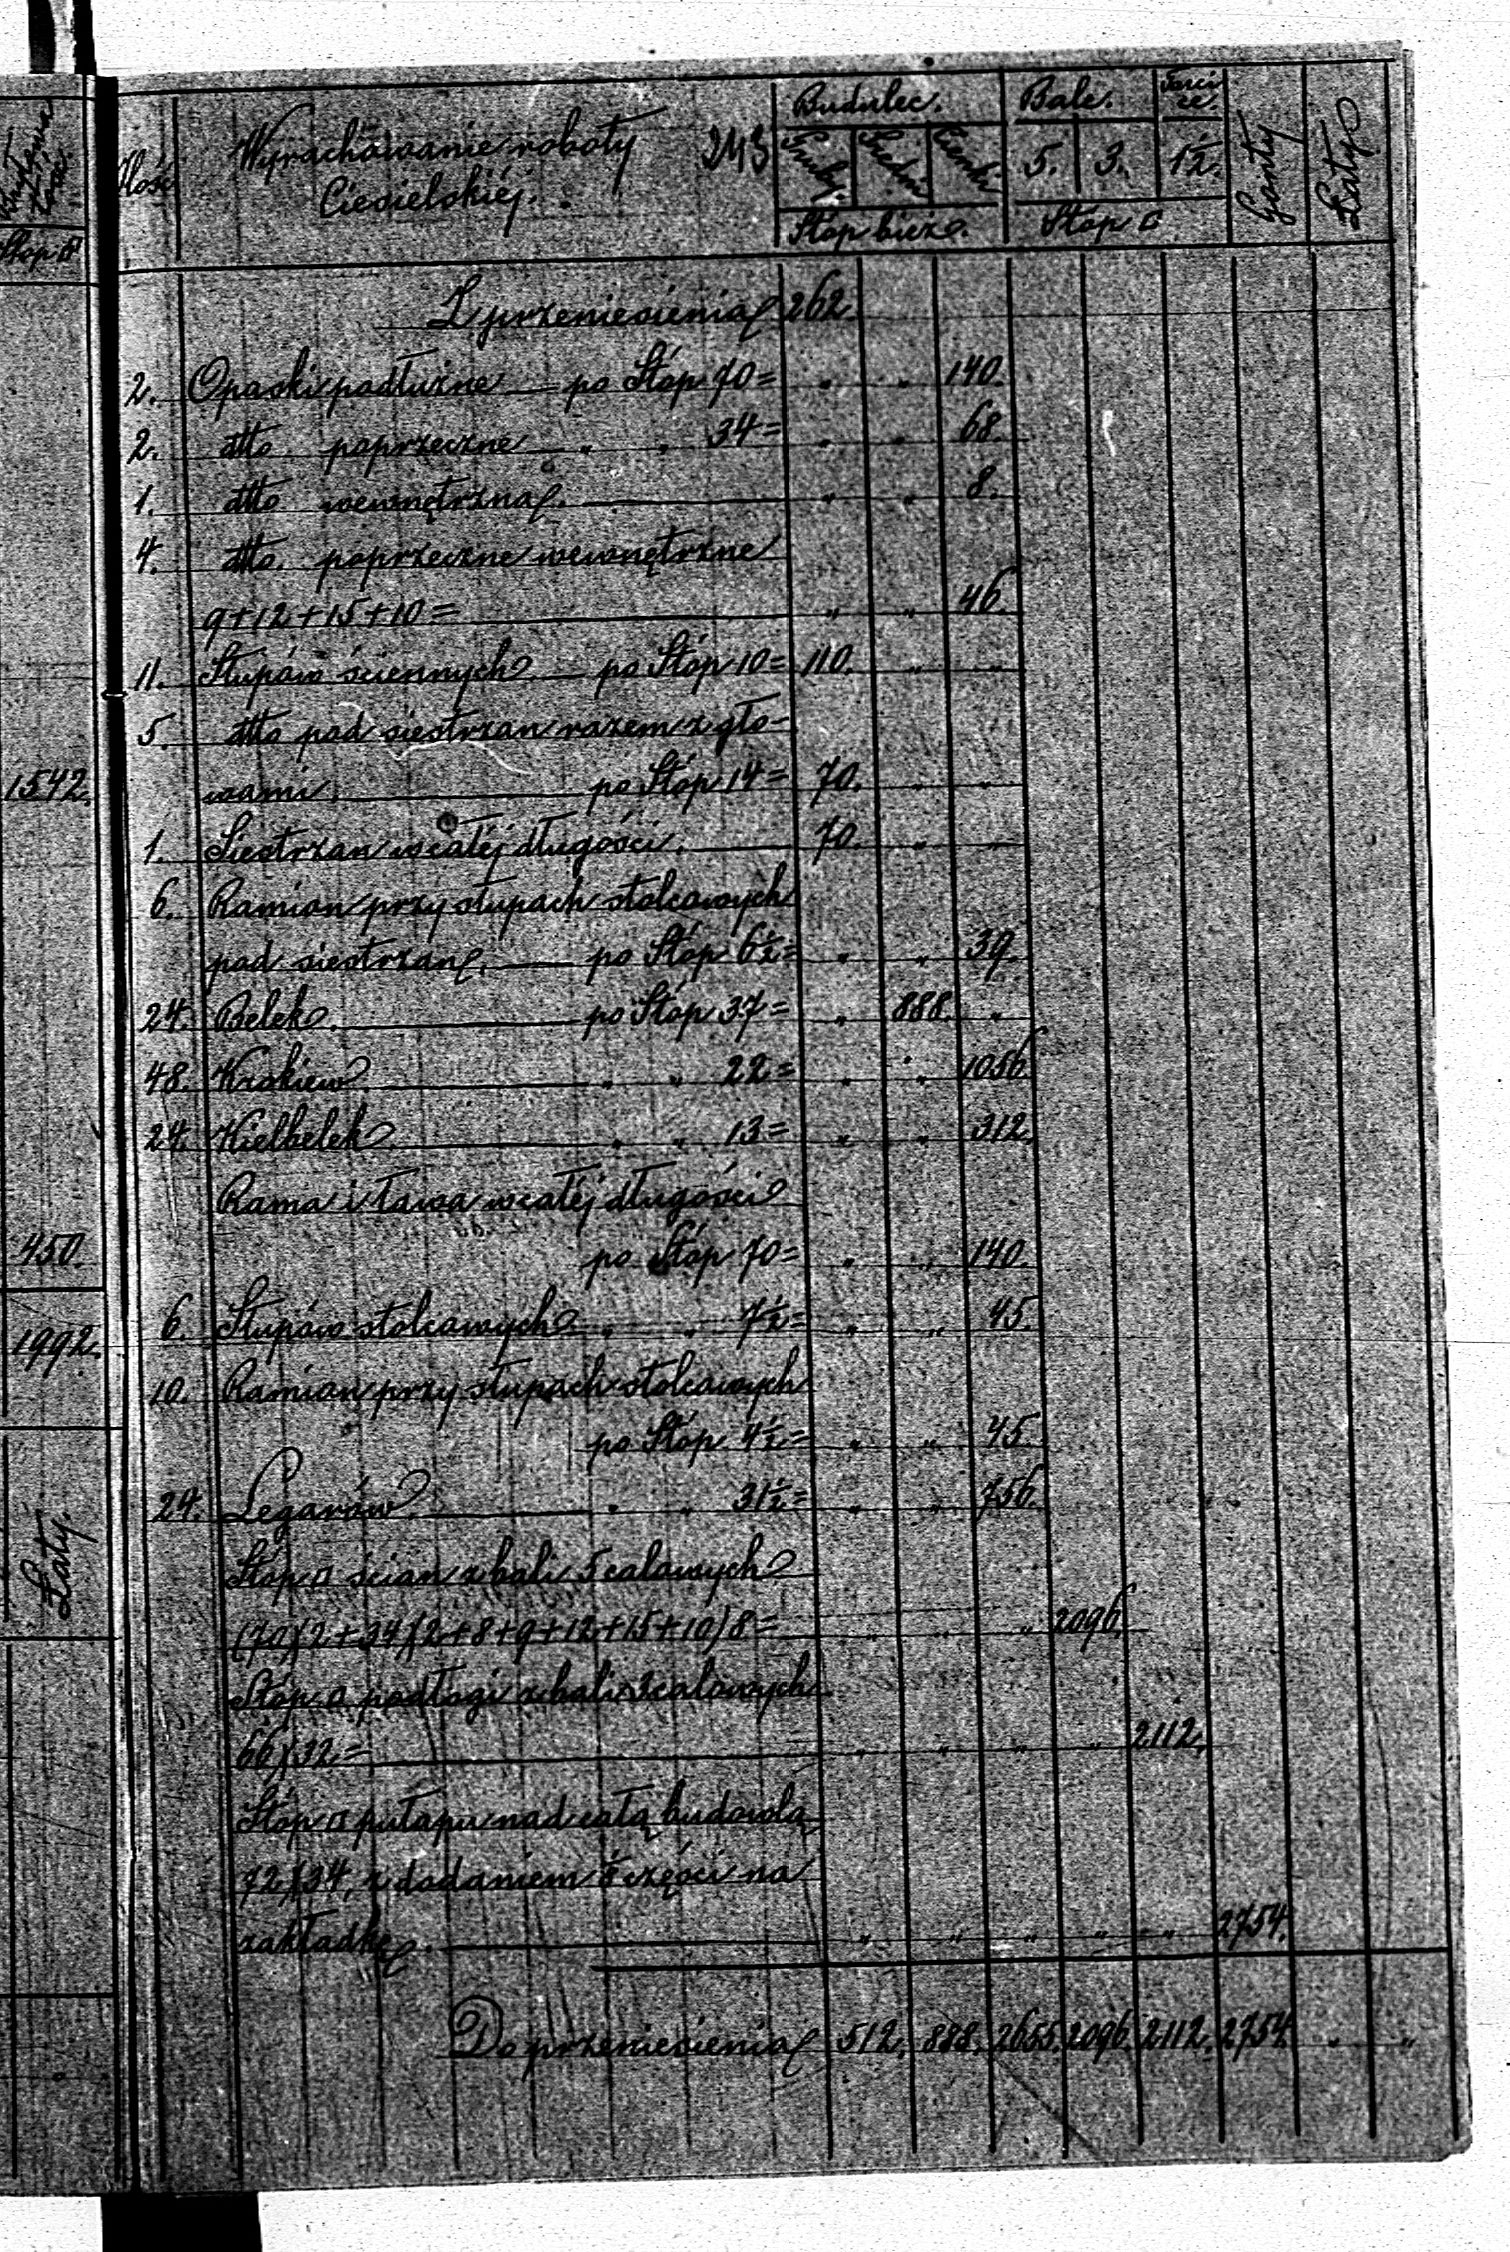 Stóp □
1542.
450.
1992.
Łaty.
Ilość
Wyrachowanie roboty
Ciesielskiéj.
243
Budulec.
Gruby.
Średni
Cienki
Stóp bież.
Bale.
5. 3.
Tarci
ce.
1½.
Stóp □
Gonty
Łaty
Z przeniesienia 262.
2. Opaski podłużne po Stóp 70 = „ „ 140.
2. dtto poprzeczne „ „ 34 = „ „ 68.
1. dtto wewnętrzna „ „ 8.
4. dtto. poprzeczne wewnętrzne
9+12+15+10 = „ „ 46.
11. Słupów ściennych po Stóp 10 = 110. „ „
5. dtto pod siestrzan razem z gło-
wami po Stóp 14 = 70. „ „
1. Siestrzan w całéj długości. 70. „ „
6. Ramion przy słupach stolcowych
pod siestrzan po Stóp 6½ = „ „ 39.
24. Belek po Stóp 37 = „ 888. „
48. Krokiew „ „ 22 = „ „ 1056.
24. Kielbelek „ „ 13 = „ „ 312.
Rama i ława w całéj długości
po Stóp 70 = „ „ 140.
6. Słupów stolcowych „ „ 7½ = „ „ 45.
10. Ramion przy słupach stolcowych
po Stóp 4½ = „ „ 45.
24. Legarów „ „ 31½ = „ „ 756.
Stóp □ ścian z bali 5 calowych
(70)(2+34)(2+8+9+12+15+10)8 = „ „ „ 2096.
Stóp □ podłogi z bali 3 calowych
66)(32 = „ „ „ „ 2112.
Stóp □ pułapu nad całą budowlą
72)(34, z dodaniem części na
zakładkę. „ „ „ „ „ 2754.
Do przeniesienia 512. 888. 2655. 2096. 2112. 2754. „ „